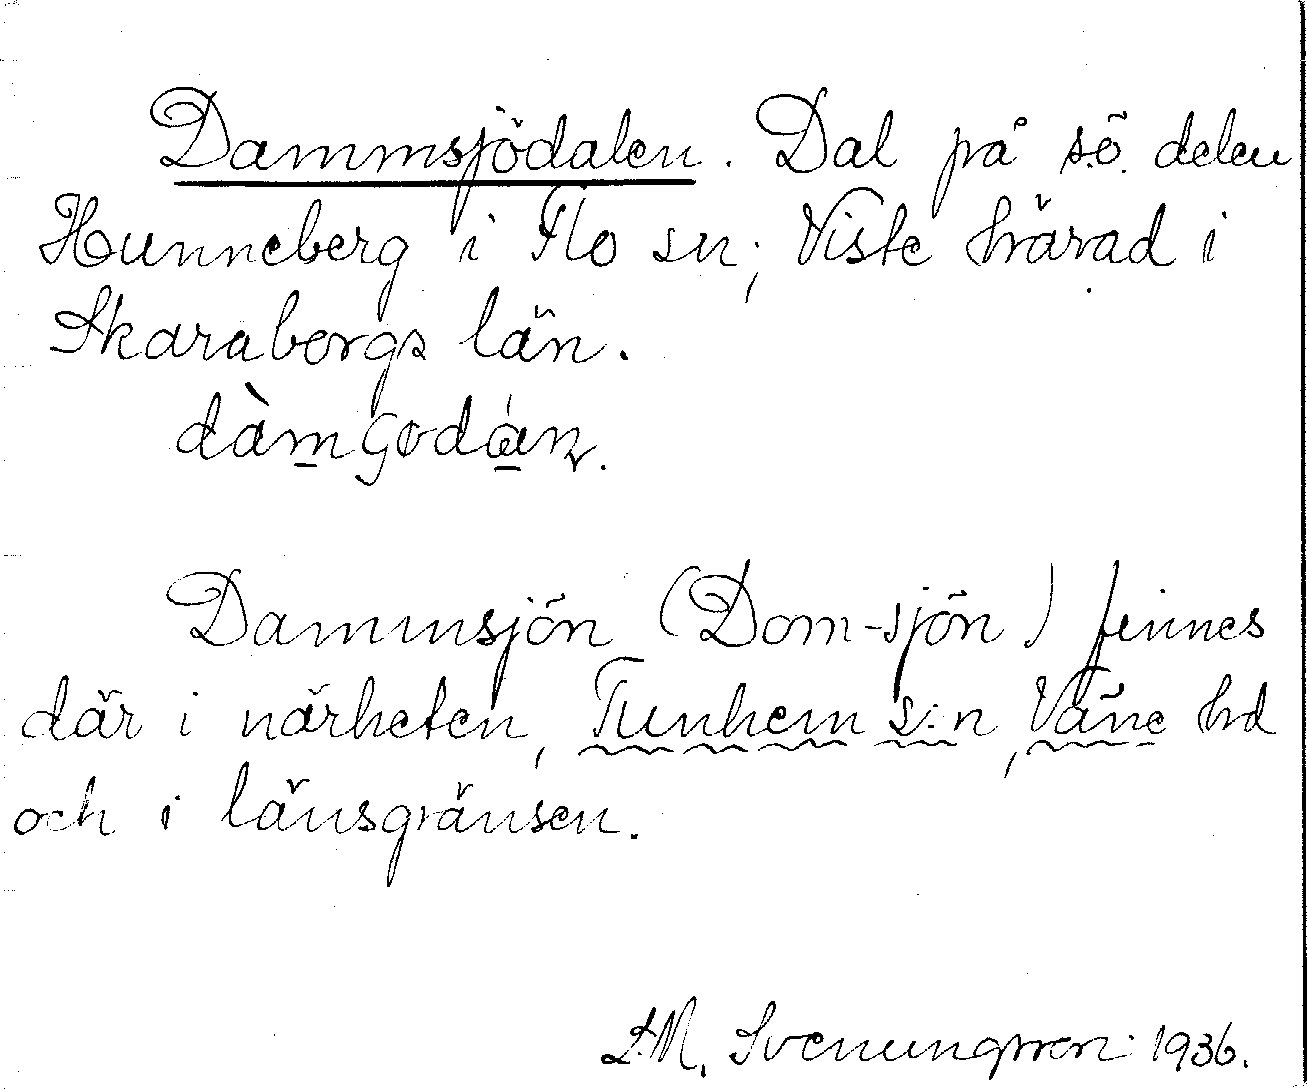 Dammsjödalen. Dal på s.ö. delen
Hunneberg i Flo sn; Viste härad i
Skaraborgs län.
Dammsjön (Dom-sjön) finnes
där i närheten, Tunhem s:n, Väne hd
och i länsgränsen.
S.M. Svenungsson 1936.